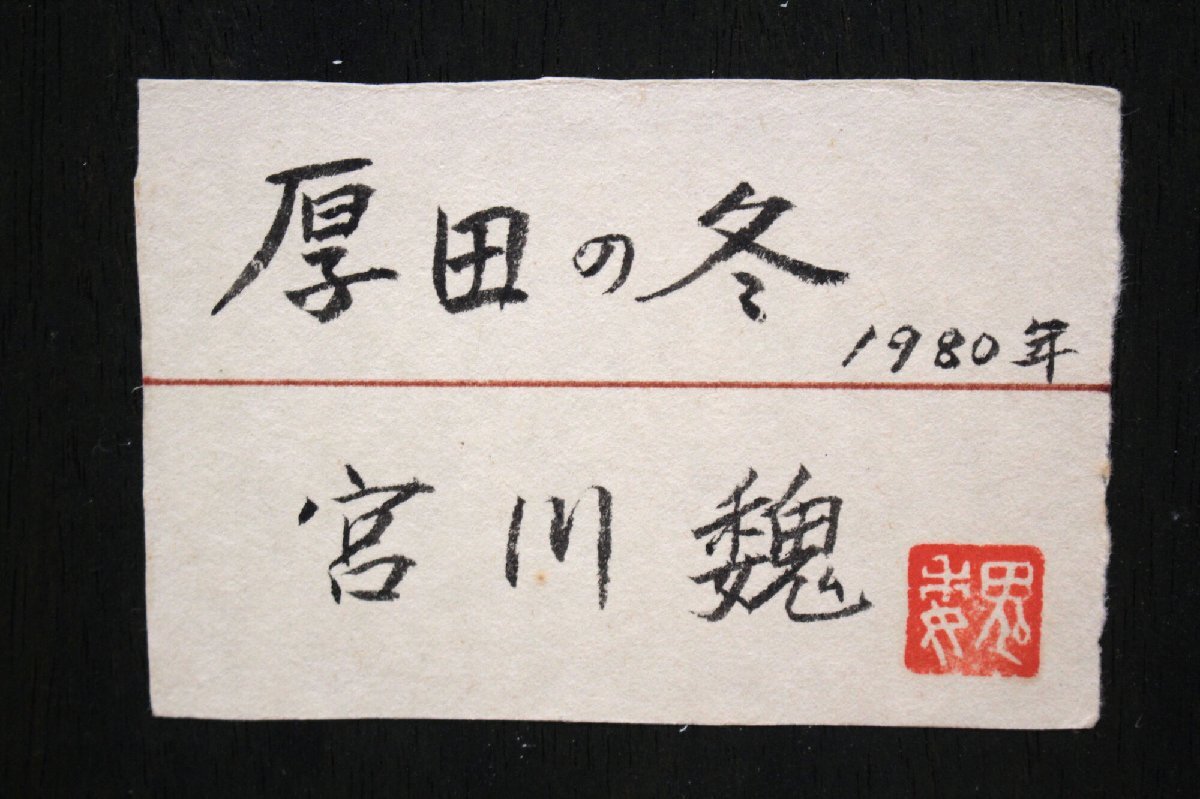 厚田の冬
1980年
宮川魏
魏